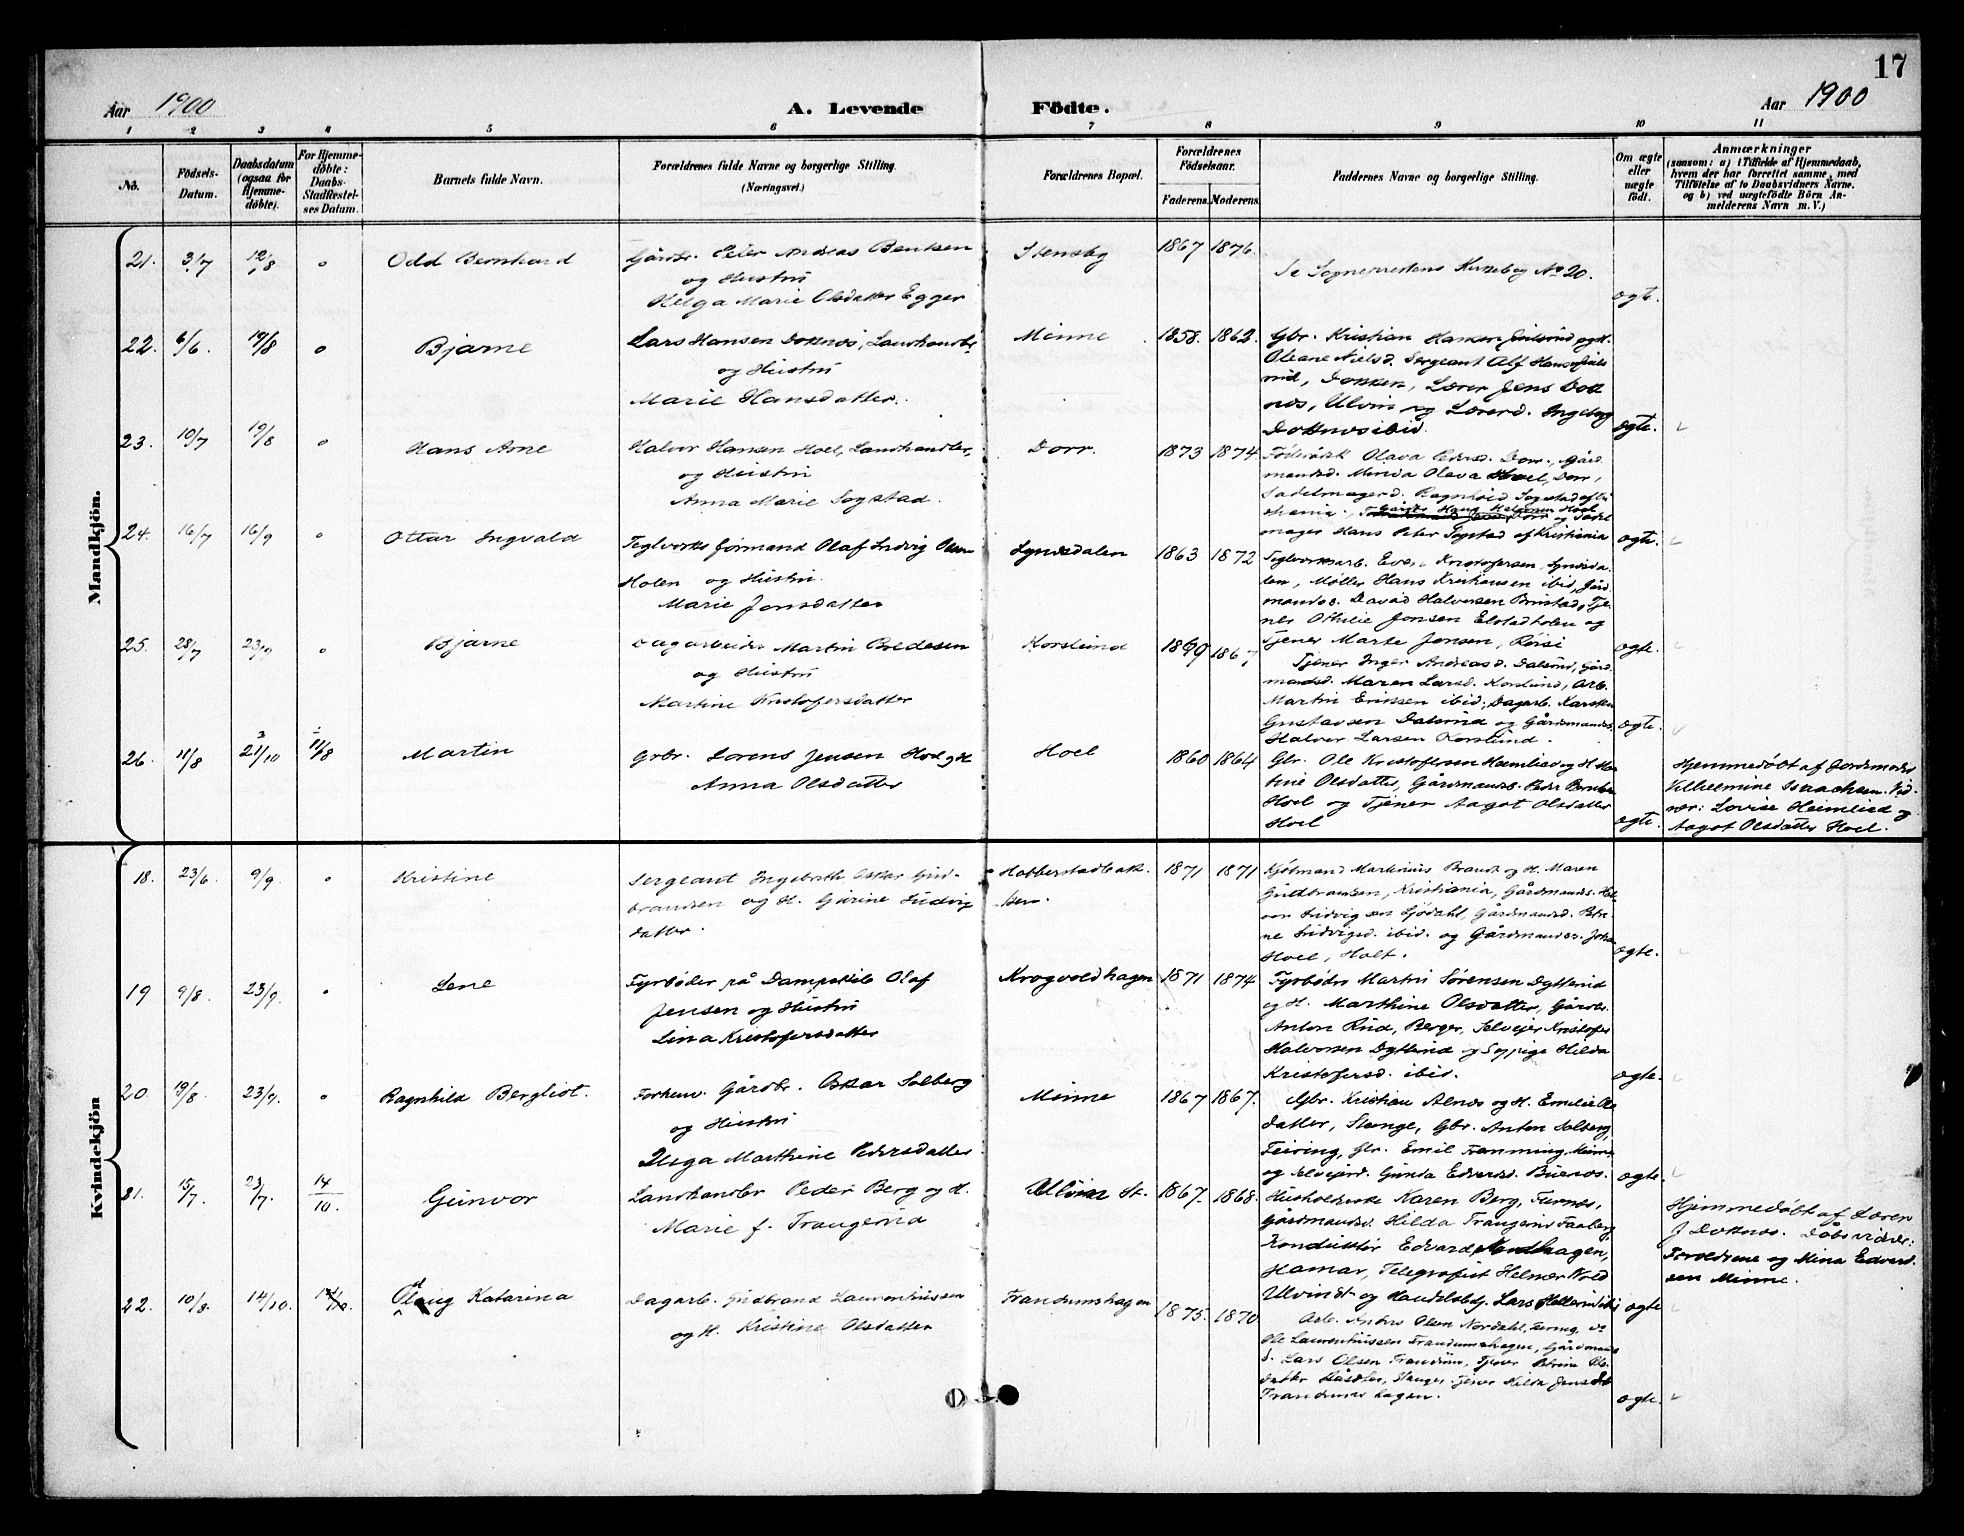 17
Aar 1900
A. Levende
Födte.
Aar 1900
1 2 3 4 5 6 7 8 9 10 11
No.
Födsels-
Datum.
Daabsdatum
(ogsaa for
Hjemme-
döbte).
For Hjemme-
döbte:
Daabs-
Stadfæstel-
ses Datum.
Barnets fulde Navn.
Forældrenes fulde Navne og borgerlige Stilling.
(Næringsvei.)
Forældrenes Bopæl.
Forældrenes
Födselsaar.
Faderens. Moderens.
Faddernes Navne og borgerlige Stilling.
Om ægte
eller
uægte
födt.
Anmærkninger
(saasom: a) i Tilfælde af Hjemmedaab,
hvem der har forrettet samme, med
Tilföielse af to Daabsvidners Navne.
og b) ved uægtefödte Börn An-
melderens Navn m. V.)
Mandkjön.
21. 3/7 12/8 o Odd Bernhard
Gårdbr. Peter Andreas Bentsen
og Hustru
Helga Marie Olsdatter Egger
Stensby 1867 1876.
Se Sogneprestens Kirkebog No 20.
ægte.
22. 6/6. 19/8 o Bjarne
Lars Hansen Doknæs, Landhandler
og Hustru
Marie Hansdatter.
Minne 1858. 1862.
Gbr. Kristian Hansen
Oleane Nielsd. Sergeant Alf
Dokken, Lærer Jens Dok
næs, Ulvin og Lærerd. Ingeborg
Doknæs ibid.
ægte.
23. 10/7 19/8 o Hans Arne
Halvor Hansen Hoel, Landhandler,
og Hustru
Anna Marie Sogstad.
Dorr. 1873 1874
Olava Pedersd. Dorr., Gård
mandsd. Minda Olava Hoel, Dorr,
Sadelmagerd. Ragnhild Sogstad af Kri
stiania.
mager Hans Peter Sogstad af Kristiania
ægte.
24. 16/7 16/9 o Ottar Ingvald
Teglverks formand Olaf Ludvig Olsen
Holen og Hustru
Marie Jonsdatter
Lyndsdalen 1863 1872
Teglverksarb. Even Kristofersen,
Møller Hans Kristiansen ibid, Gård
mandss. David Halversen Brustad, Tje
ner Othilie Jonsen Elstadholen og
Tjener Marte Jensen, Røisi
ægte.
25. 28/7 23/9 o Bjarne
Dagarbeider Martin Bredesen
og Hustru
Martine Kristofersdatter
Korslund 1869 1867
Tjener Inger Andreasd. Dalsrud, Gård
mandsd. Maren Larsd. Korslund, Arb.
Martin Eriksen ibid, Dagarb. Karsten
Gustavsen Dalsrud og Gårdmands.
Halver Larsen Korslund.
ægte.
26. 11/8 21/10 11/8 Martin
Grbr. Lorens Jensen Hoel og H.
Anna Olsdatter
Hoel 1860 1864
Gbr. Ole Kristofersen Heimlied og H.
Olsdatter, Gårdmandss. Peder
Hoel og Tjener Aagot Olsdatter
Hoel
ægte.
Hjemmedøbt af Jordmoder
Vilhelmine Isaachsen. Vid-
ner: Lovise Heimlied og
Aagot Olsdatter Hoel.
Kvindekjön
18. 23/6 9/9. o Kristine
Sergeant Ingebreth Oskar Gud-
brandsen og H. Gurine Ludvigs
datter.
Habberstadbak
ken. 1871 1871
Kjøbmand Martinius Brandt og H. Maren
Gudbrandsen, Kristiania, Gårdmands.
Ludvigsen Sjødahl, Gårdmandsd. Petri
ne Ludvigsd. ibid. og Gårdmandss. Johan
Hoel, Holt.
ægte.
19 9/8. 23/9. o Lene
Fyrbøder på Dampskib Olaf
Jensen og Hustru
Lina Kristofersdatter
Krogvoldhagen 1871 1874
Fyrbøder Martin Sørensen Dytterud
og H. Marthine Olsdatter, Gårdbr.
Anton Ruud, Berger, Selveier Kristofer
Halvorsen Dytterud og Sypige Hilda
Kristofersd. ibid.
ægte.
20. 19/8. 23/9. o Ragnhild Bergliot.
Forhenv. Gårdbr. Oskar Solberg
og Hustru
Olga Marthine Pedersdatter
Minne 1867 1867.
Gbr. Kristian Alnæs og H. Emilie Ols
datter, Stange, Gbr. Anton Solberg,
Feiring, Gbr. Emil Framming, Minne
og Selveierd. Gunda Edvardsd.
ægte.
21. 15/7. 23/7. 14/10. Gunvor
Landhandler Peder Berg og H.
Marie f. Trangerud
Ulvin St. 1867. 1868.
Husholderske Karen Berg, Furnes,
Gårdmandsd. Hilda Trangerud Faaberg
Konduktør Edvard Nordhagen,
Hamar, Telegrafist Helmer Vold
Ulvin St. og Handelsbetj. Lars
ægte
Hjemmedøbt af Lærer
J Doknæs. Dåbsvidner:
Forældrene og Mina Edvard
sen Minne.
22. 10/8. 14/10. 14/10. Olaug Katarina
Dagarb. Gudbrand Laurentiussen
og H. Kristine Olsdatter
Frandumshagen 1875. 1870
Arb. Anders Olsen Nordahl, Feiring,
Ole Laurentiussen Frandumshagen, Gårdmands
s. Lars Olsen Frandum, Tjener Petrine Ols
datter
Frandumshagen.
ægte.